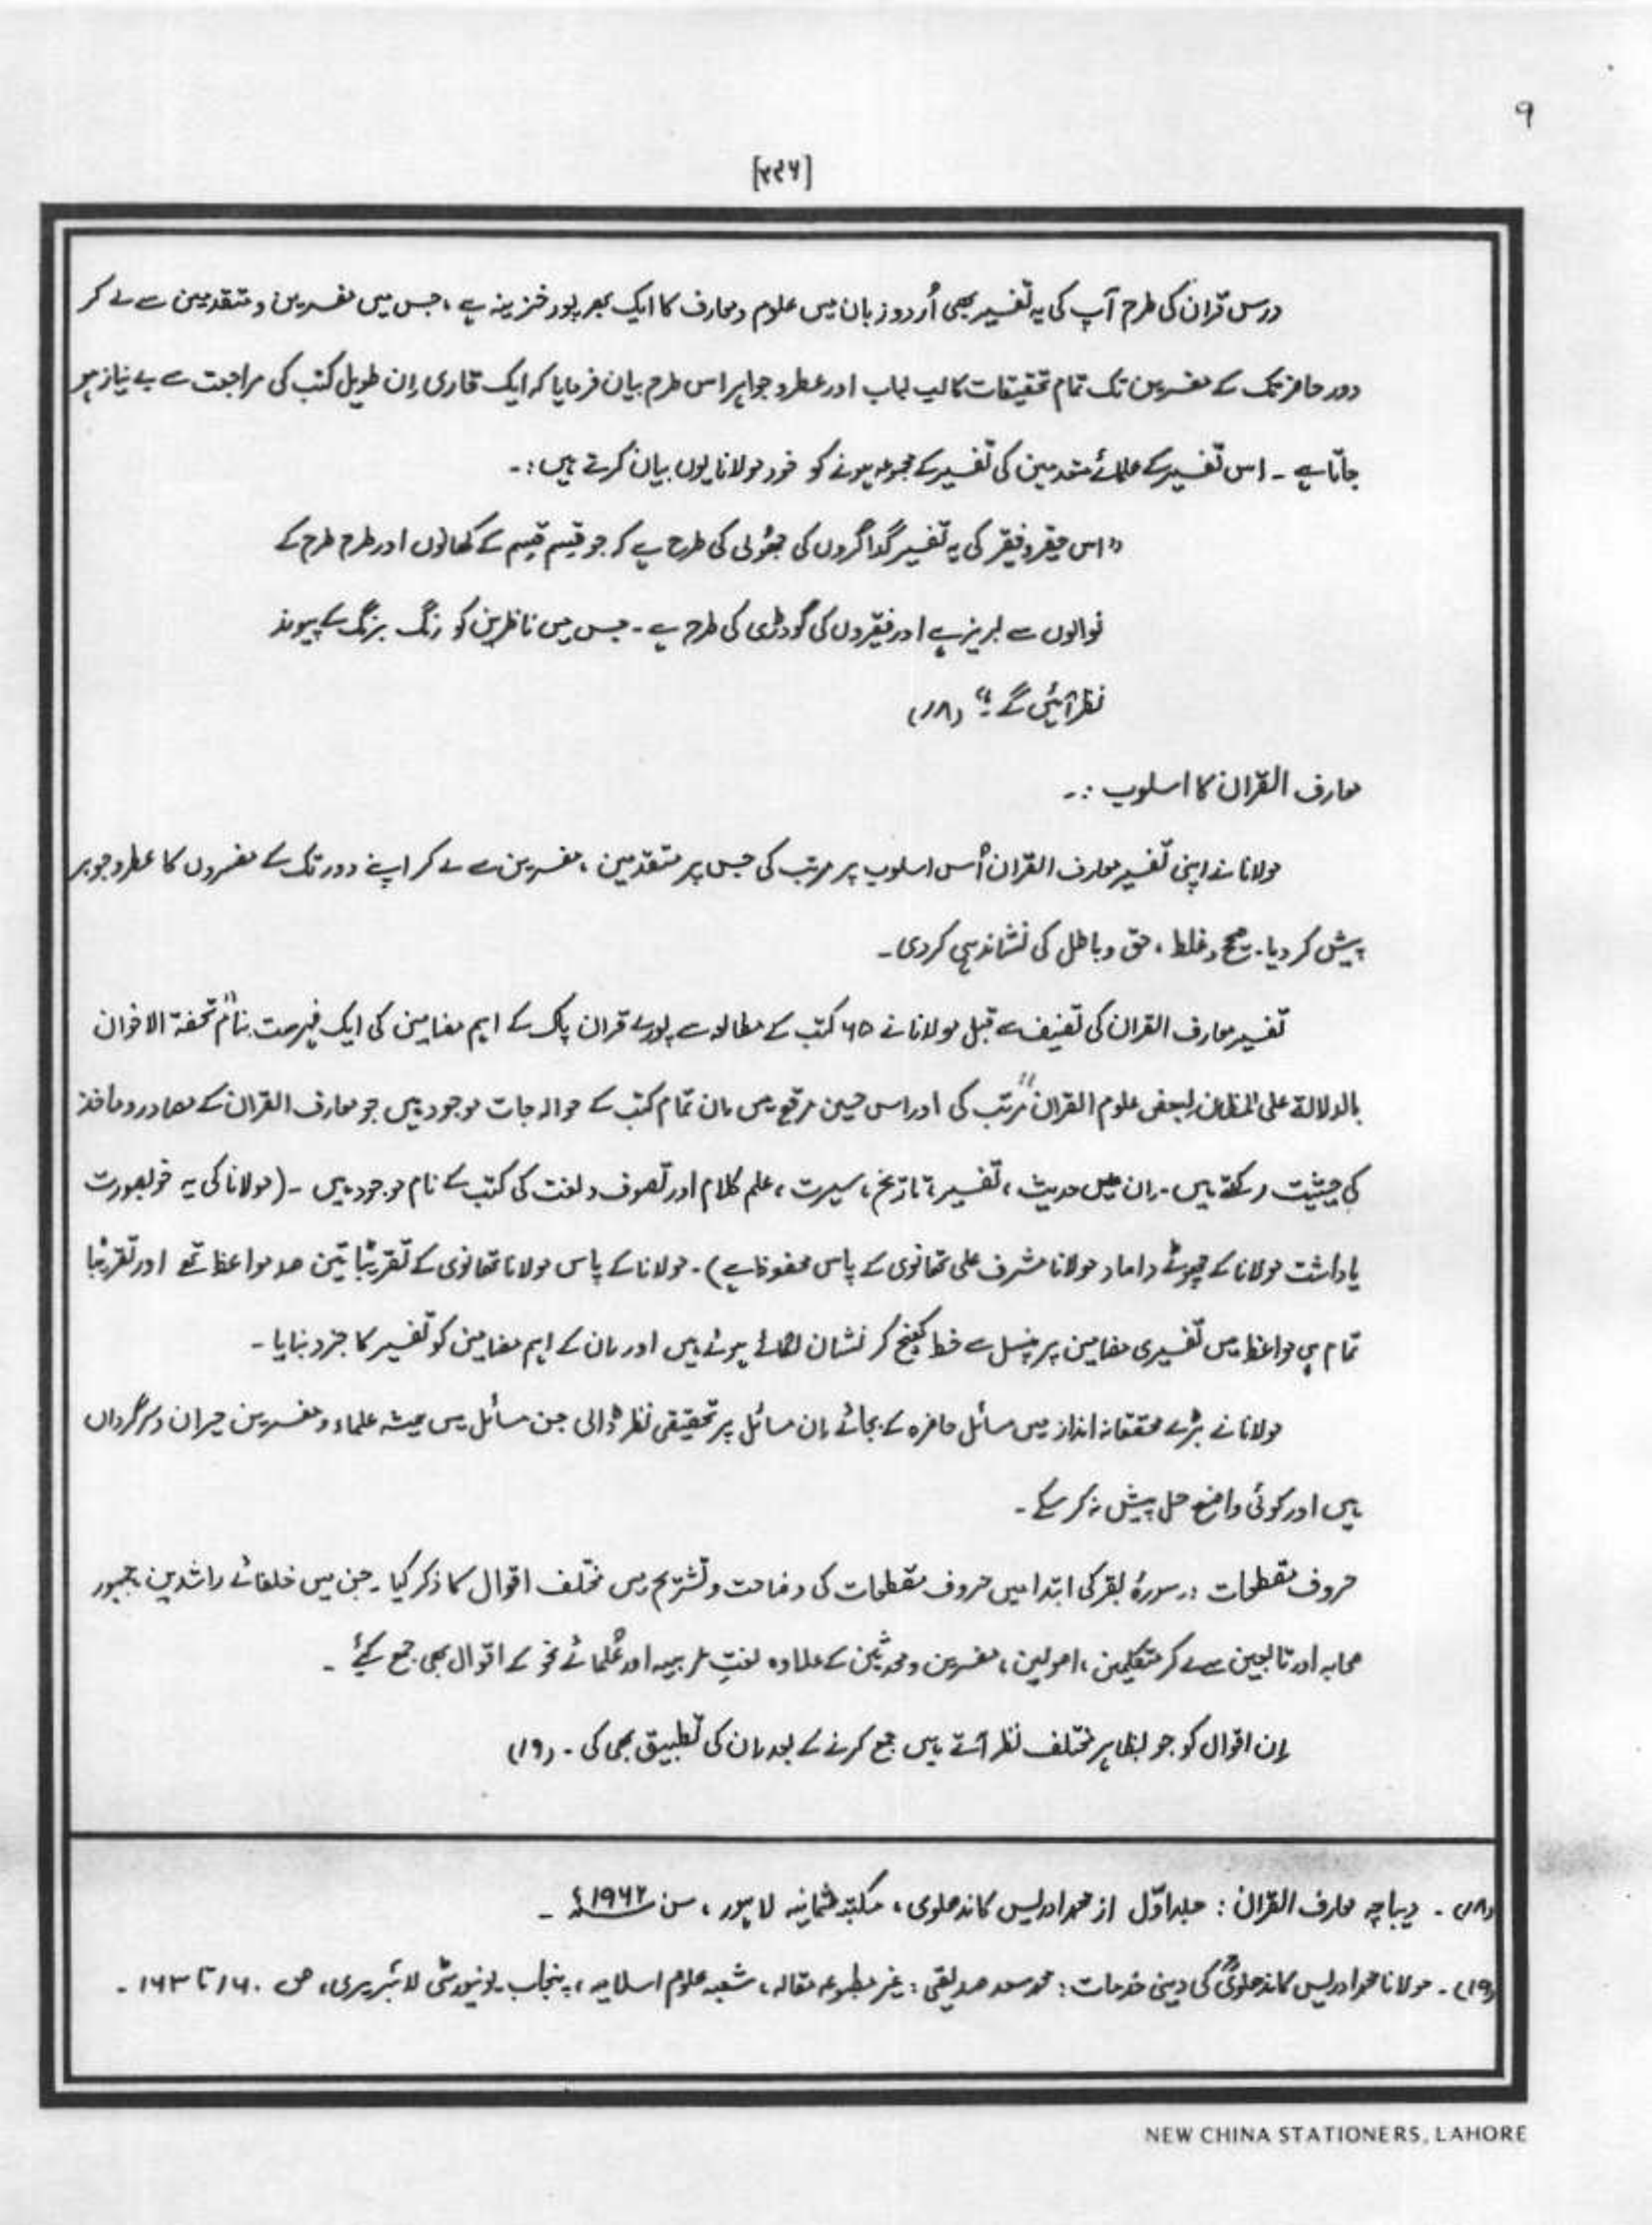 ۹
[۲۹۶]
درس قرآن کی طرح آپ کی یہ تفسیر بھی اُردو زبان میں علوم و معارف کا ایک بھرپور خزینہ ہے، جس میں مفسرین و متقدمین سے لے کر
دور حاضر تک کے مفسرین تک تمام تحقیقات کا لب لباب اور عطر و جواہر اس طرح بیان فرمایا کہ ایک قاری اِن طویل کتب کی مراجعت سے بے نیاز ہو
جاتا ہے ۔ اس تفسیر کے علمائے متقدمین کی تفسیر کے مجموعہ ہونے کو خود مولانا یوں بیان کرتے ہیں :۔
"اس حقیر و فقیر کی یہ تفسیر گداگروں کی جھولی کی طرح ہے کہ جو قسم قسم کے کھانوں اور طرح طرح کے
نوالوں سے لبریز ہے اور فقیروں کی گودڑی کی طرح ہے ۔ جس میں ناظرین کو رنگ برنگ کے پیوند
نظر آئیں گے ۔" (۱۸)
معارف القرآن کا اسلوب :۔
مولانا نے اپنی تفسیر معارف القرآن اُس اسلوب پر مرتب کی جس پر متقدمین ، مفسرین سے لے کر اپنے دور تک کے مفسروں کا عطر و جوہر
پیش کر دیا۔ صحیح و غلط ، حق و باطل کی نشاندہی کر دی ۔
تفسیر معارف القرآن کی تصنیف سے قبل مولانا نے ۶۵ کتب کے مطالعہ سے پورے قرآن پاک کے اہم مضامین کی ایک فہرست بنام "تحفۃ الاخوان
بالدلالۃ علی المظان لبعض علوم القرآن" مرتب کی اور اس حسین مرقع میں اِن تمام کتب کے حوالہ جات موجود ہیں جو معارف القرآن کے مصادر و ماخذ
کی حیثیت رکھتے ہیں ۔ اِن میں حدیث ، تفسیر ، تاریخ ، سیرت ، علم کلام اور تصوف و لغت کی کتب کے نام موجود ہیں ۔ (مولانا کی یہ خوبصورت
یاداشت مولانا کے چھوٹے داماد مولانا مشرف علی تھانوی کے پاس محفوظ ہے) ۔ مولانا کے پاس مولانا تھانوی کے تقریبًا تین صد مواعظ تھے اور تقریبًا
تمام ہی مواعظ میں تفسیری مضامین پر پنسل سے خط کھینچ کر نشان لگائے ہوئے ہیں اور اِن کے اہم مضامین کو تفسیر کا جزو بنایا ۔
مولانا نے بڑے محققانہ انداز میں مسائل حاضرہ کے بجائے اِن مسائل پر تحقیقی نظر ڈالی جن مسائل میں ہمیشہ علماء و مفسرین حیران و سرگرداں
ہیں اور کوئی واضح حل پیش نہ کر سکے ۔
حروف مقطعات :۔ سورۂ بقر کی ابتدا میں حروف مقطعات کی وضاحت و تشریح میں مختلف اقوال کا ذکر کیا ۔ جن میں خلفائے راشدین ، جمہور
صحابہ اور تابعین سے لے کر متکلمین ، اصولین ، مفسرین و محدثین کے علاوہ لغتِ عربیہ اور عُلمائے نحو کے اقوال بھی جمع کیے ۔
اِن اقوال کو جو بظاہر مختلف نظر آتے ہیں جمع کرنے کے بعد اِن کی تطبیق بھی کی ۔ (۱۹)
(۱۸) ۔ دیباچہ معارف القرآن : جلد اوّل از محمد ادریس کاندھلوی ، مکتبہ عثمانیہ لاہور ، سن ۱۹۶۲ء ۔
(۱۹) ۔ مولانا محمد ادریس کاندھلویؒ کی دینی خدمات : محمد سعد صدیقی : غیر مطبوعہ مقالہ ، شعبہ علوم اسلامیہ ، پنجاب یونیورسٹی لائبریری ، ص ۱۶۰ تا ۱۶۳ ۔
NEW CHINA STATIONERS, LAHORE